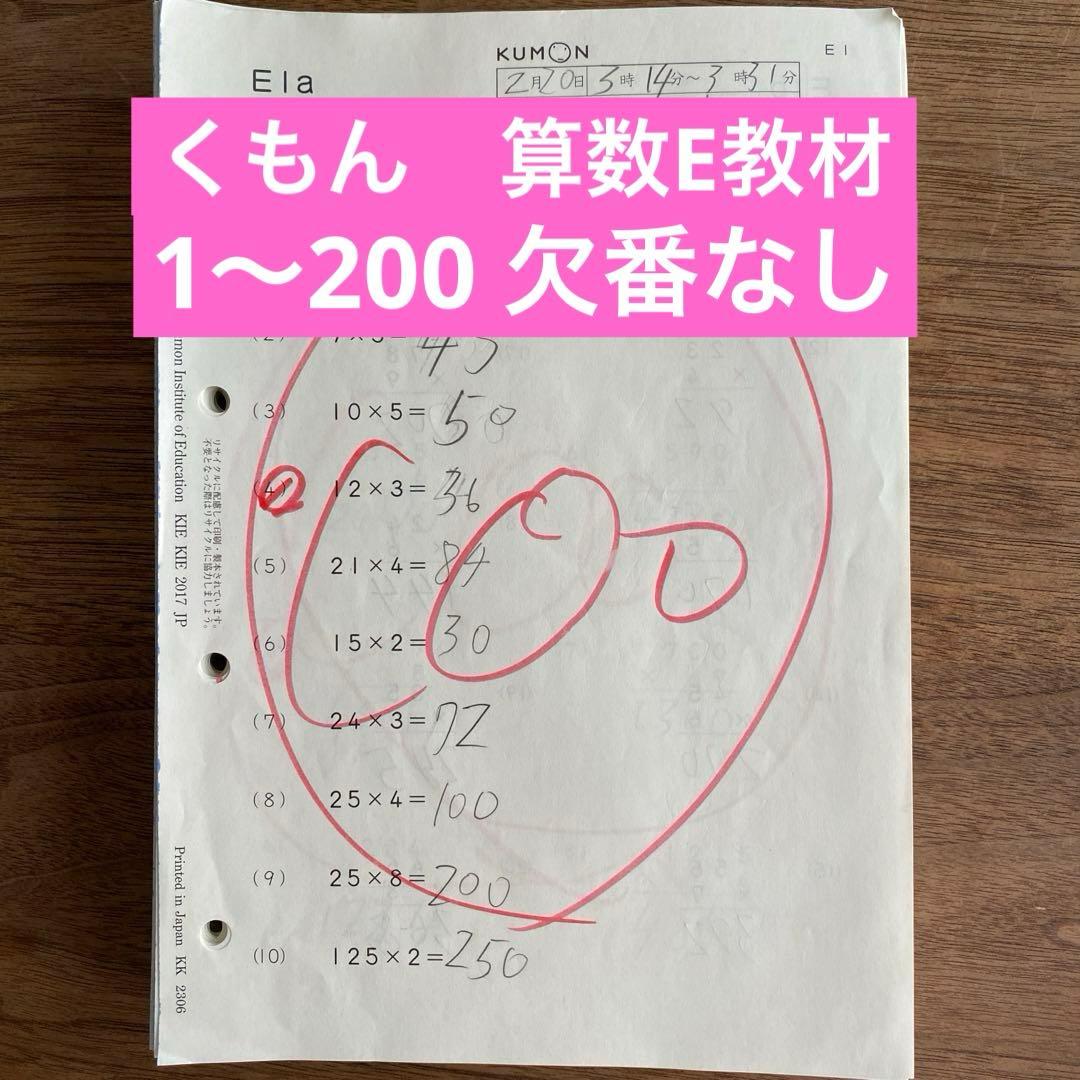 KUMON
E1
E1a
2月20日 3時14分〜3時31分
くもん 算数E教材
1〜200 欠番なし
(3) 10×5=50
(4) 12×3=36
(5) 21×4=84
(6) 15×2=30
(7) 24×3=72
(8) 25×4=100
(9) 25×8=200
(10) 125×2=250
100
リサイクルに配慮して印刷・製本されています。
不要となった際はリサイクルに協力しましょう。
Institute of Education KIE KIE 2017 JP
Printed in Japan KK 2306